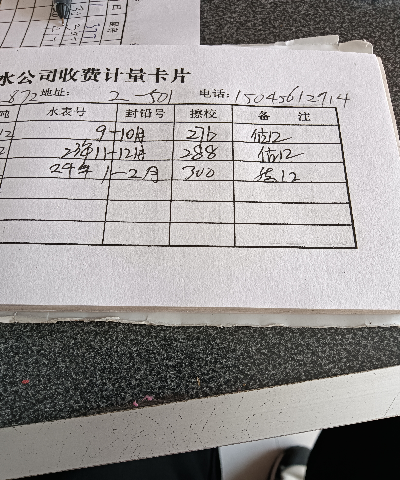 水公司收费计量卡片
872 地址: 2-501 电话: 15045612914
吨 水表号 封铅号 擦校 备 注
12 9-10月 276 估12
2 23年11-12月 288 估12
24年 1-2月 300 估12